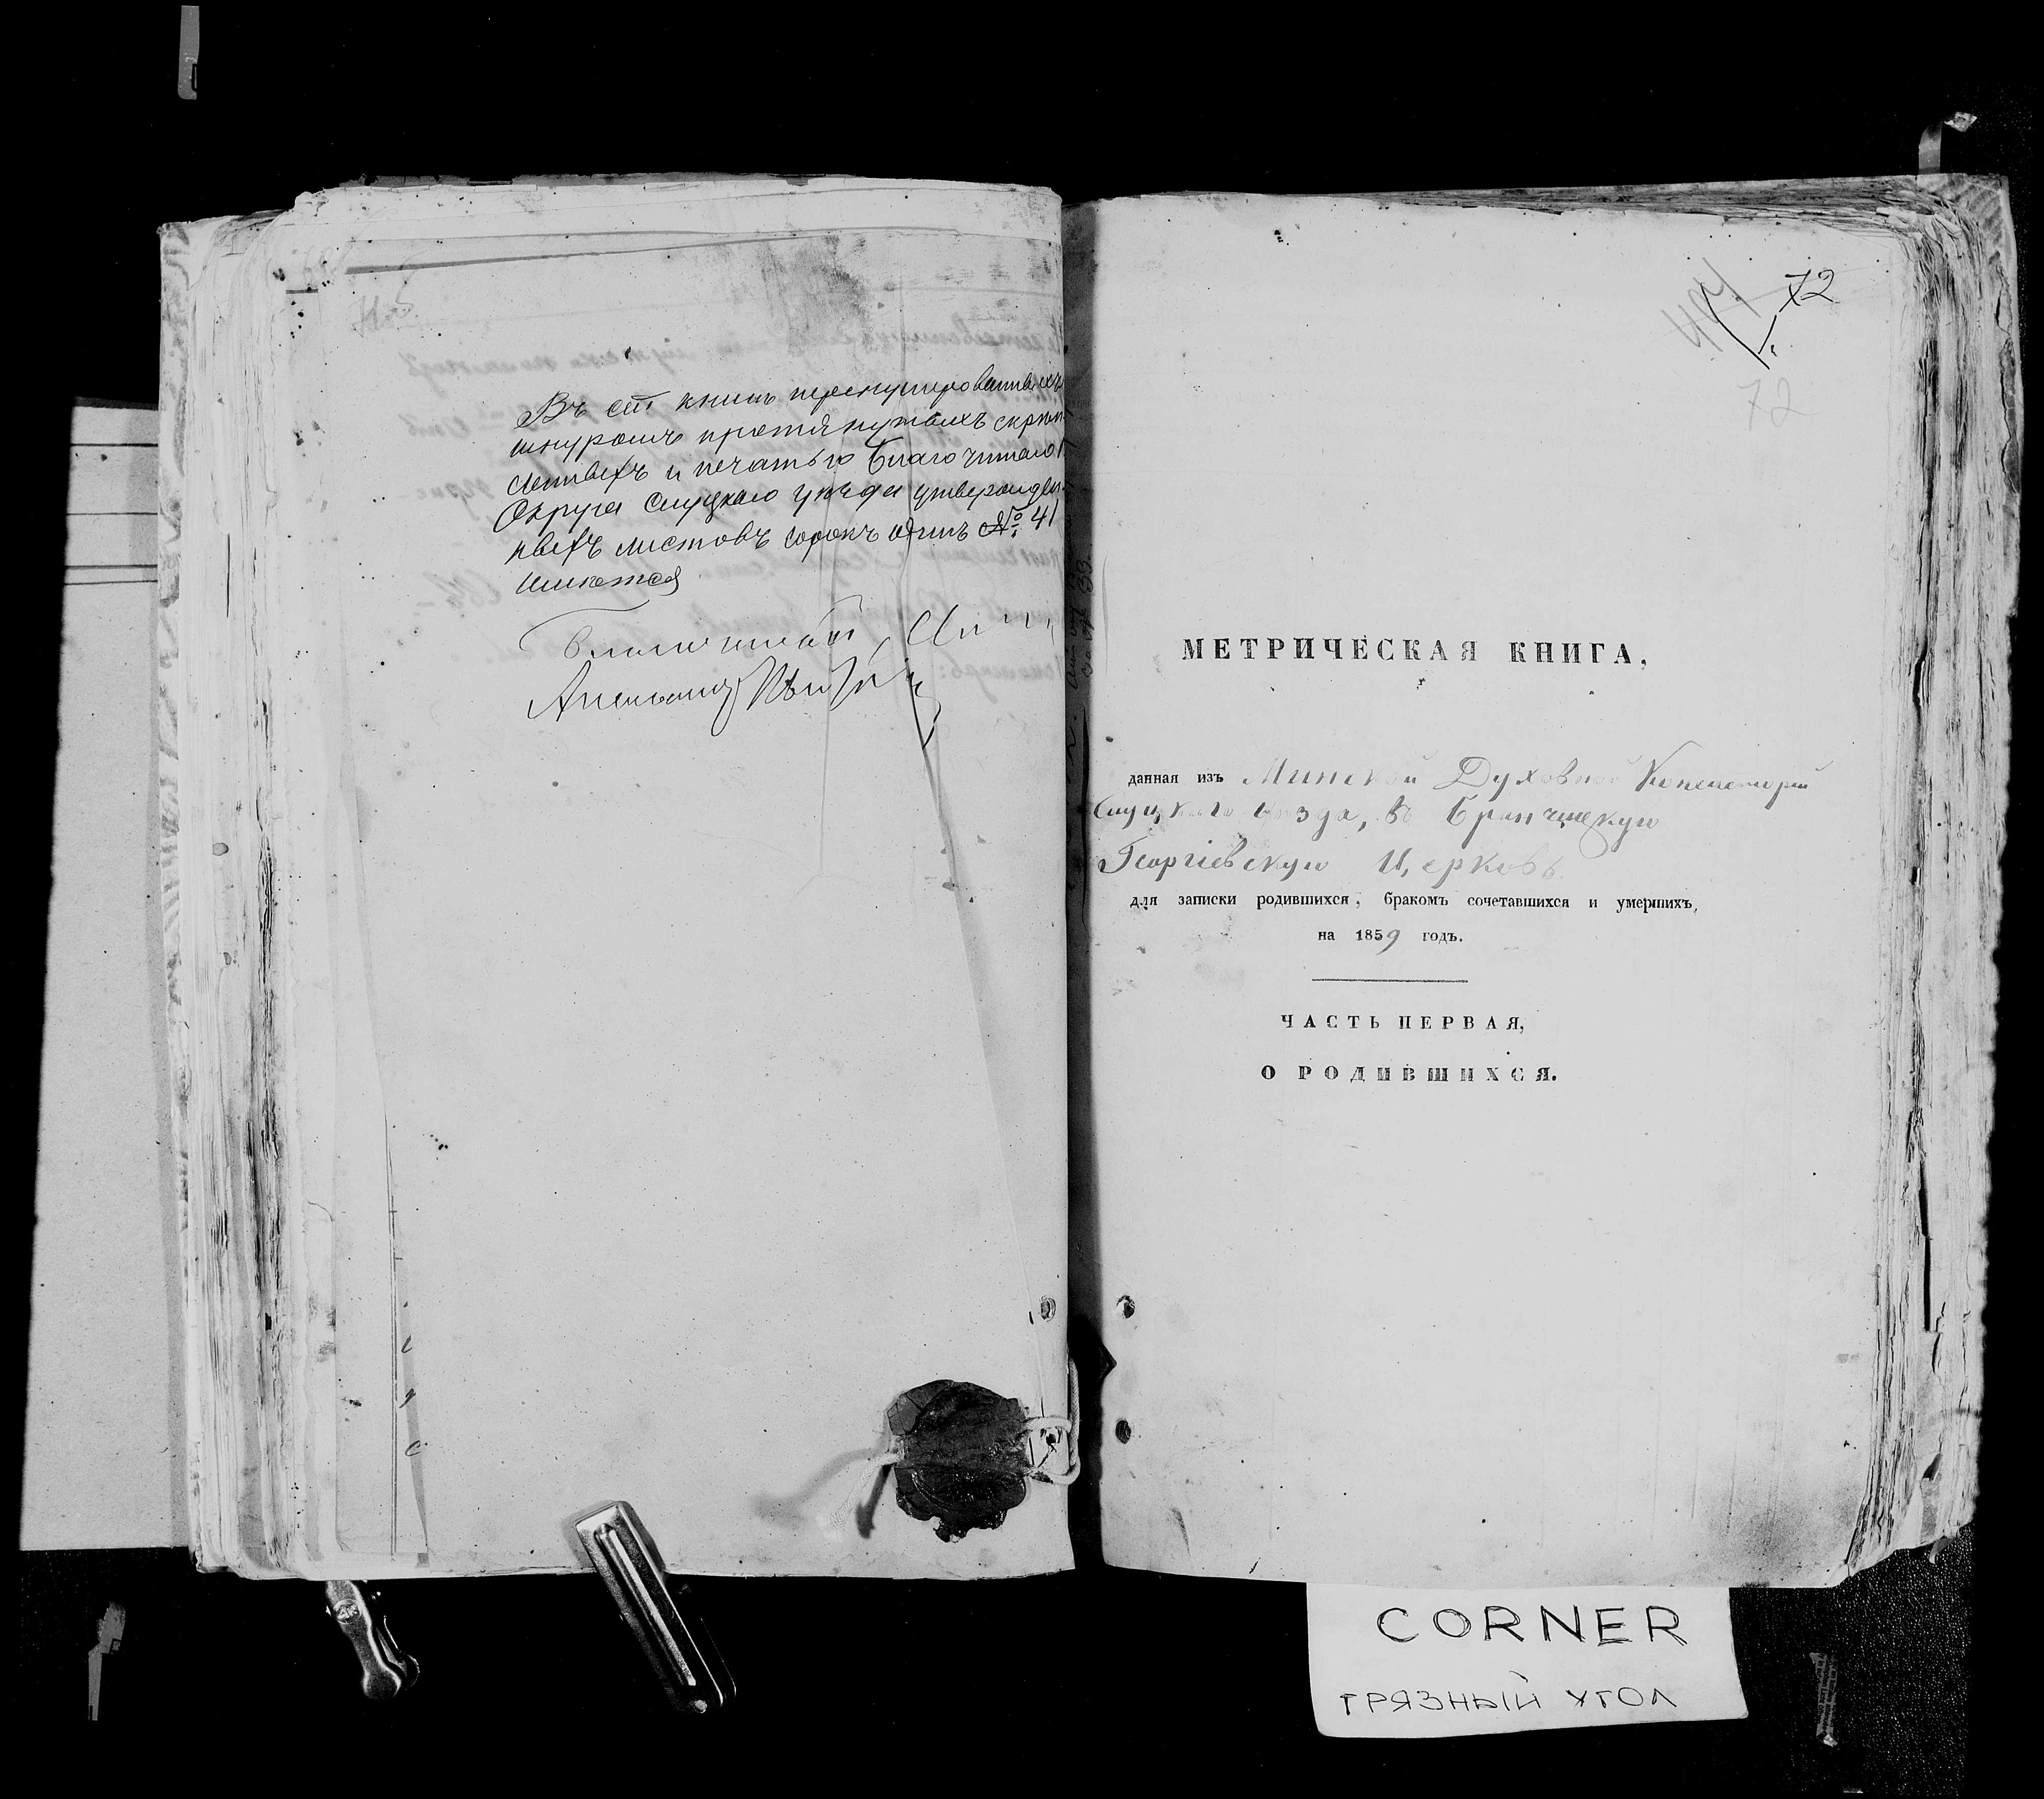 Въ сей книгѣ перенумерованныхъ
шнуромъ протянутыхъ скрѣп
ленныхъ и печатью Благочиннаго 1
Округа Слуцкаго уѣзда утвержден
ныхъ листовъ сорокъ одинъ № 41
имѣется
Благочинный
72
72
МЕТРИЧЕСКАЯ КНИГА,
данная изъ Минской Духовной Консисторіи
Слуцкаго уѣзда, въ Бранчицкую
Георгіевскую Церковь
для записки родившихся, бракомъ сочетавшихся и умершихъ,
на 1859 годъ.
ЧАСТЬ ПЕРВАЯ,
О РОДИВШИХСЯ.
CORNER
ГРЯЗНЫЙ УГОЛ